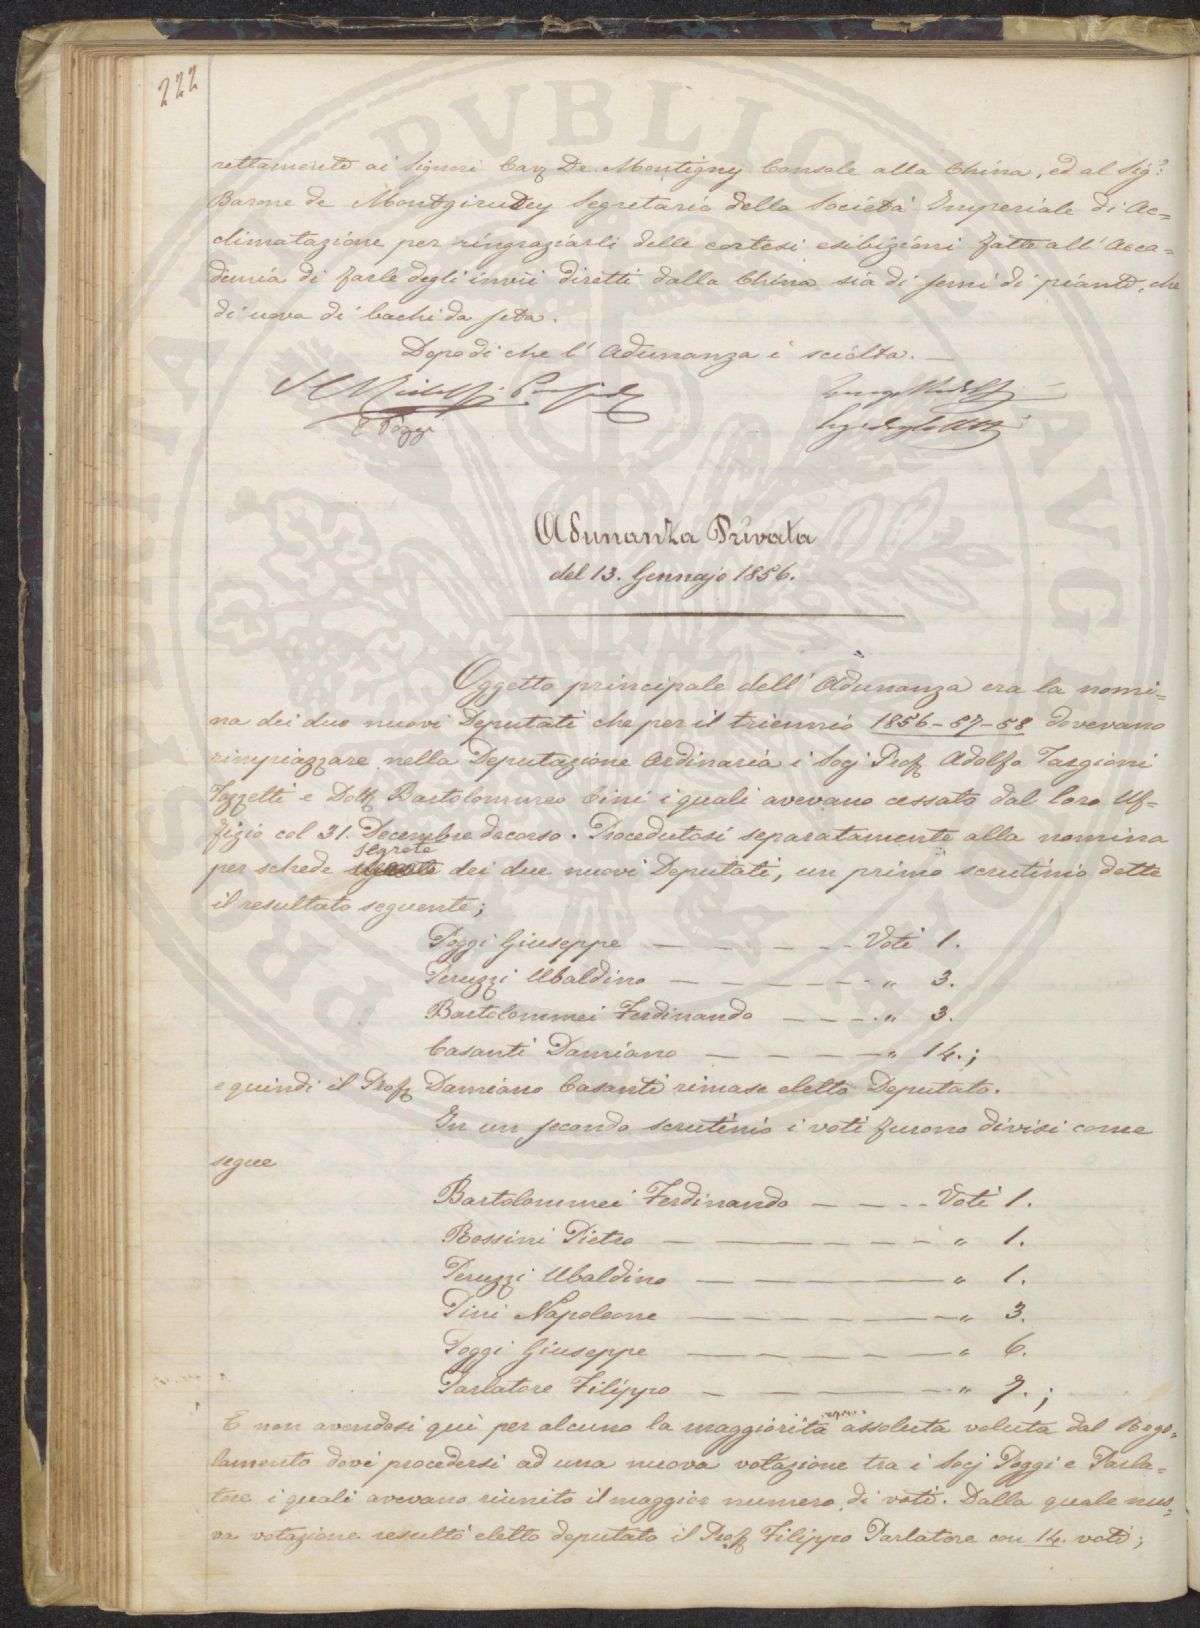 222
rettamente ai Signori Cav De Montigny Console alla China, ed al Sigr
Barone de Montgirudey Segretario della Società Imperiale di Ac=
climatazione per ringraziarli delle cortesi esibizioni fatte all'Acca=
demia di farle degli invii diretti dalla China sia di semi di piante, che
di uova di bachi da seta.
Dopo di che l'Adunanza è sciolta. —
E Poggi
Adunanza Privata
del 13. Gennajo 1856.
Oggetto principale dell'Adunanza era la nomi=
na dei due nuovi Deputati che per il triennio 1856-57-58 dovevano
rimpiazzare nella Deputazione Ordinaria i Socj Prof Adolfo Targioni
Tozzetti e Dott Bartolommeo Cini i quali avevano cessato dal loro Uf=
fizio col 31. Decembre decorso. Procedutosi separatamente alla nomina
per schede segrete dei due nuovi Deputati, un primo scrutinio dette
il resultato seguente;
Poggi Giuseppe — — — — — Voti 1.
Peruzzi Ubaldino — — — — — — " 3.
Bartolommei Ferdinando — — — . " 3.
Casanti Damiano — — — — — " 14.;
e quindi il Prof Damiano Casanti rimase eletto Deputato.
In un secondo scrutinio i voti furono divisi come
segue
Bartolommei Ferdinando — — — - Voti 1.
Rossini Pietro — — — — — — — " 1.
Peruzzi Ubaldino — — — — — — " 1.
Pini Napoleone — — — — — — — " 3.
Poggi Giuseppe — — — — — — — " 6.
Parlatore Filippo — — — — — — " 7.;
E non avendosi quì per alcuno la maggiorità assoluta voluta dal Rego=
lamento dovè procedersi ad una nuova votazione tra i Socj Poggi e Parla=
tore i quali avevano riunito il maggior numero di voti. Dalla quale nuo=
va votazione resultò eletto deputato il Prof Filippo Parlatore con 14. voti;
PUBLIC